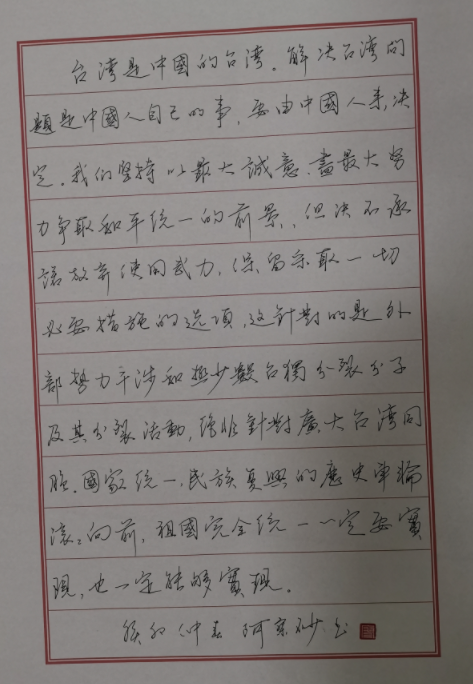 台湾是中國的台湾。解决台湾问
題是中國人自己的事，要由中國人来决
定。我们堅持以最大誠意、盡最大努
力争取和平统一的前景，但决不承
諾放弃使用武力，保留采取一切
必要措施的选項，这針對的是外
部势力干涉和極少數台獨分裂分子
及其分裂活動，绝非針對廣大台湾同
胞。國家统一、民族复興的歷史車輪
滚滚向前，祖國完全统一一定要實
現，也一定能够實現。